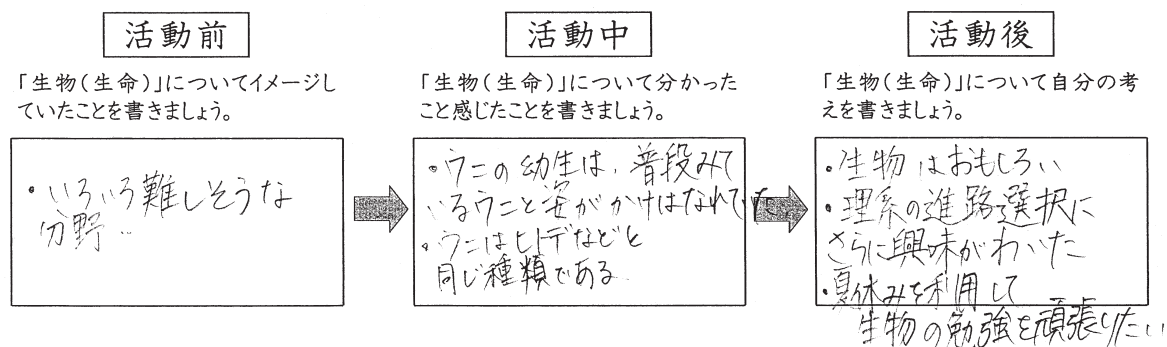 活動前
「生物(生命)」についてイメージし
ていたことを書きましょう。
・いろいろ難しそうな
分野‥
活動中
「生物(生命)」について分かった
こと感じたことを書きましょう。
・ウニの幼生は、普段みて
いるウニと姿がかけはなれていた
・ウニはヒトデなどと
同じ種類である.
活動後
「生物(生命)」について自分の考
えを書きましょう。
・生物はおもしろい
・理系の進路選択に
さらに興味がわいた
・夏休みを利用して
生物の勉強を頑張りたい